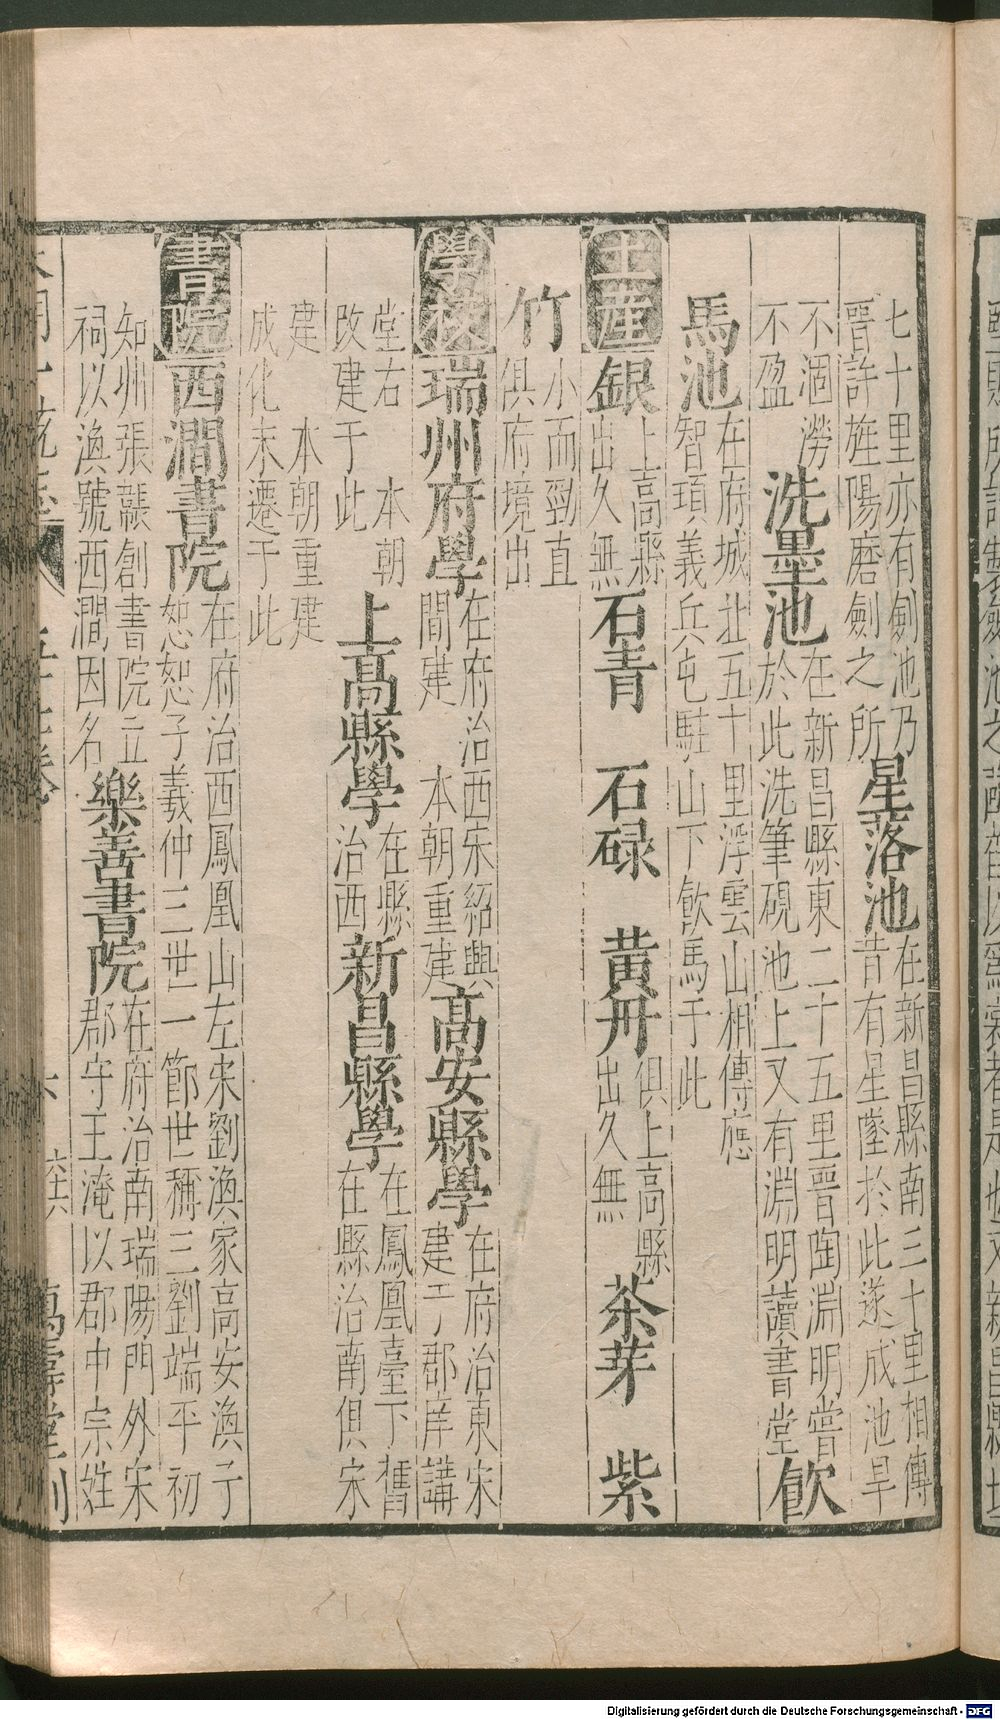 七十里亦有劍池乃星落池在新昌縣南三十里相傳
晋許旌陽磨劍之所昔有星墜於此遂成池旱
不涸澇洗墨池在新昌縣東二十五里晉陶淵明嘗飲
不盈於此洗筆硯池上又有淵明讀書堂
馬池在府城北五十里浮雲山相傳應
智頊義兵屯駐山下飲馬于此
土產銀上高縣出久無石青 石碌 黃丹俱上高縣出久無茶芽 紫
竹小而勁直俱府境出
學校瑞州府學在府治西宋紹興間建 本朝重建高安縣學在府治東宋建于郡庠講
堂右 本朝改建于此上高縣學在縣治西新昌縣學在鳳凰臺下舊在縣治南俱宋
建 本朝重建
成化末遷于此
書院西澗書院在府治西鳳凰山左宋劉渙家高安渙子恕恕子羲仲三世一節世稱三劉端平初
知州張 創書院立祠以渙號西澗因名樂善書院在府治南瑞陽門外宋郡守王淹以郡中宗姓
大明一統志 五十七卷 六 萬壽堂刊
Digitalisierung gefördert durch die Deutsche Forschungsgemeinschaft - DFG